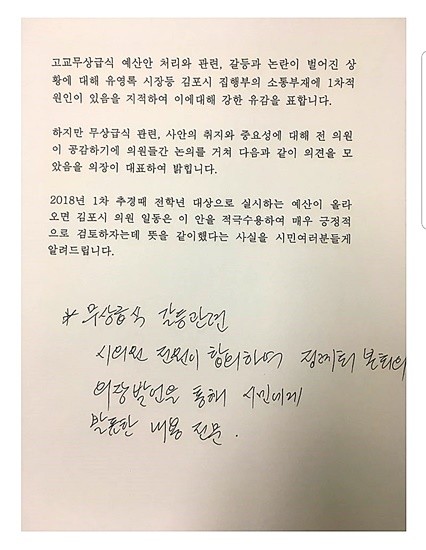 고교무상급식 예산안 처리와 관련, 갈등과 논란이 벌어진 상
황에 대해 유영록 시장등 김포시 집행부의 소통부재에 1차적
원인이 있음을 지적하여 이에대해 강한 유감을 표합니다.
하지만 무상급식 관련, 사안의 취지와 중요성에 대해 전 의원
이 공감하기에 의원들간 논의를 거쳐 다음과 같이 의견을 모
았음을 의장이 대표하여 밝힙니다.
2018년 1차 추경때 전학년 대상으로 실시하는 예산이 올라
오면 김포시 의원 일동은 이 안을 적극수용하여 매우 긍정적
으로 검토하자는데 뜻을 같이했다는 사실을 시민여러분들게
알려드립니다.
* 무상급식 갈등관련
시의원 전원이 합의하여 본회의
의장발언을 통해 시민에게
발표한 내용 전문.